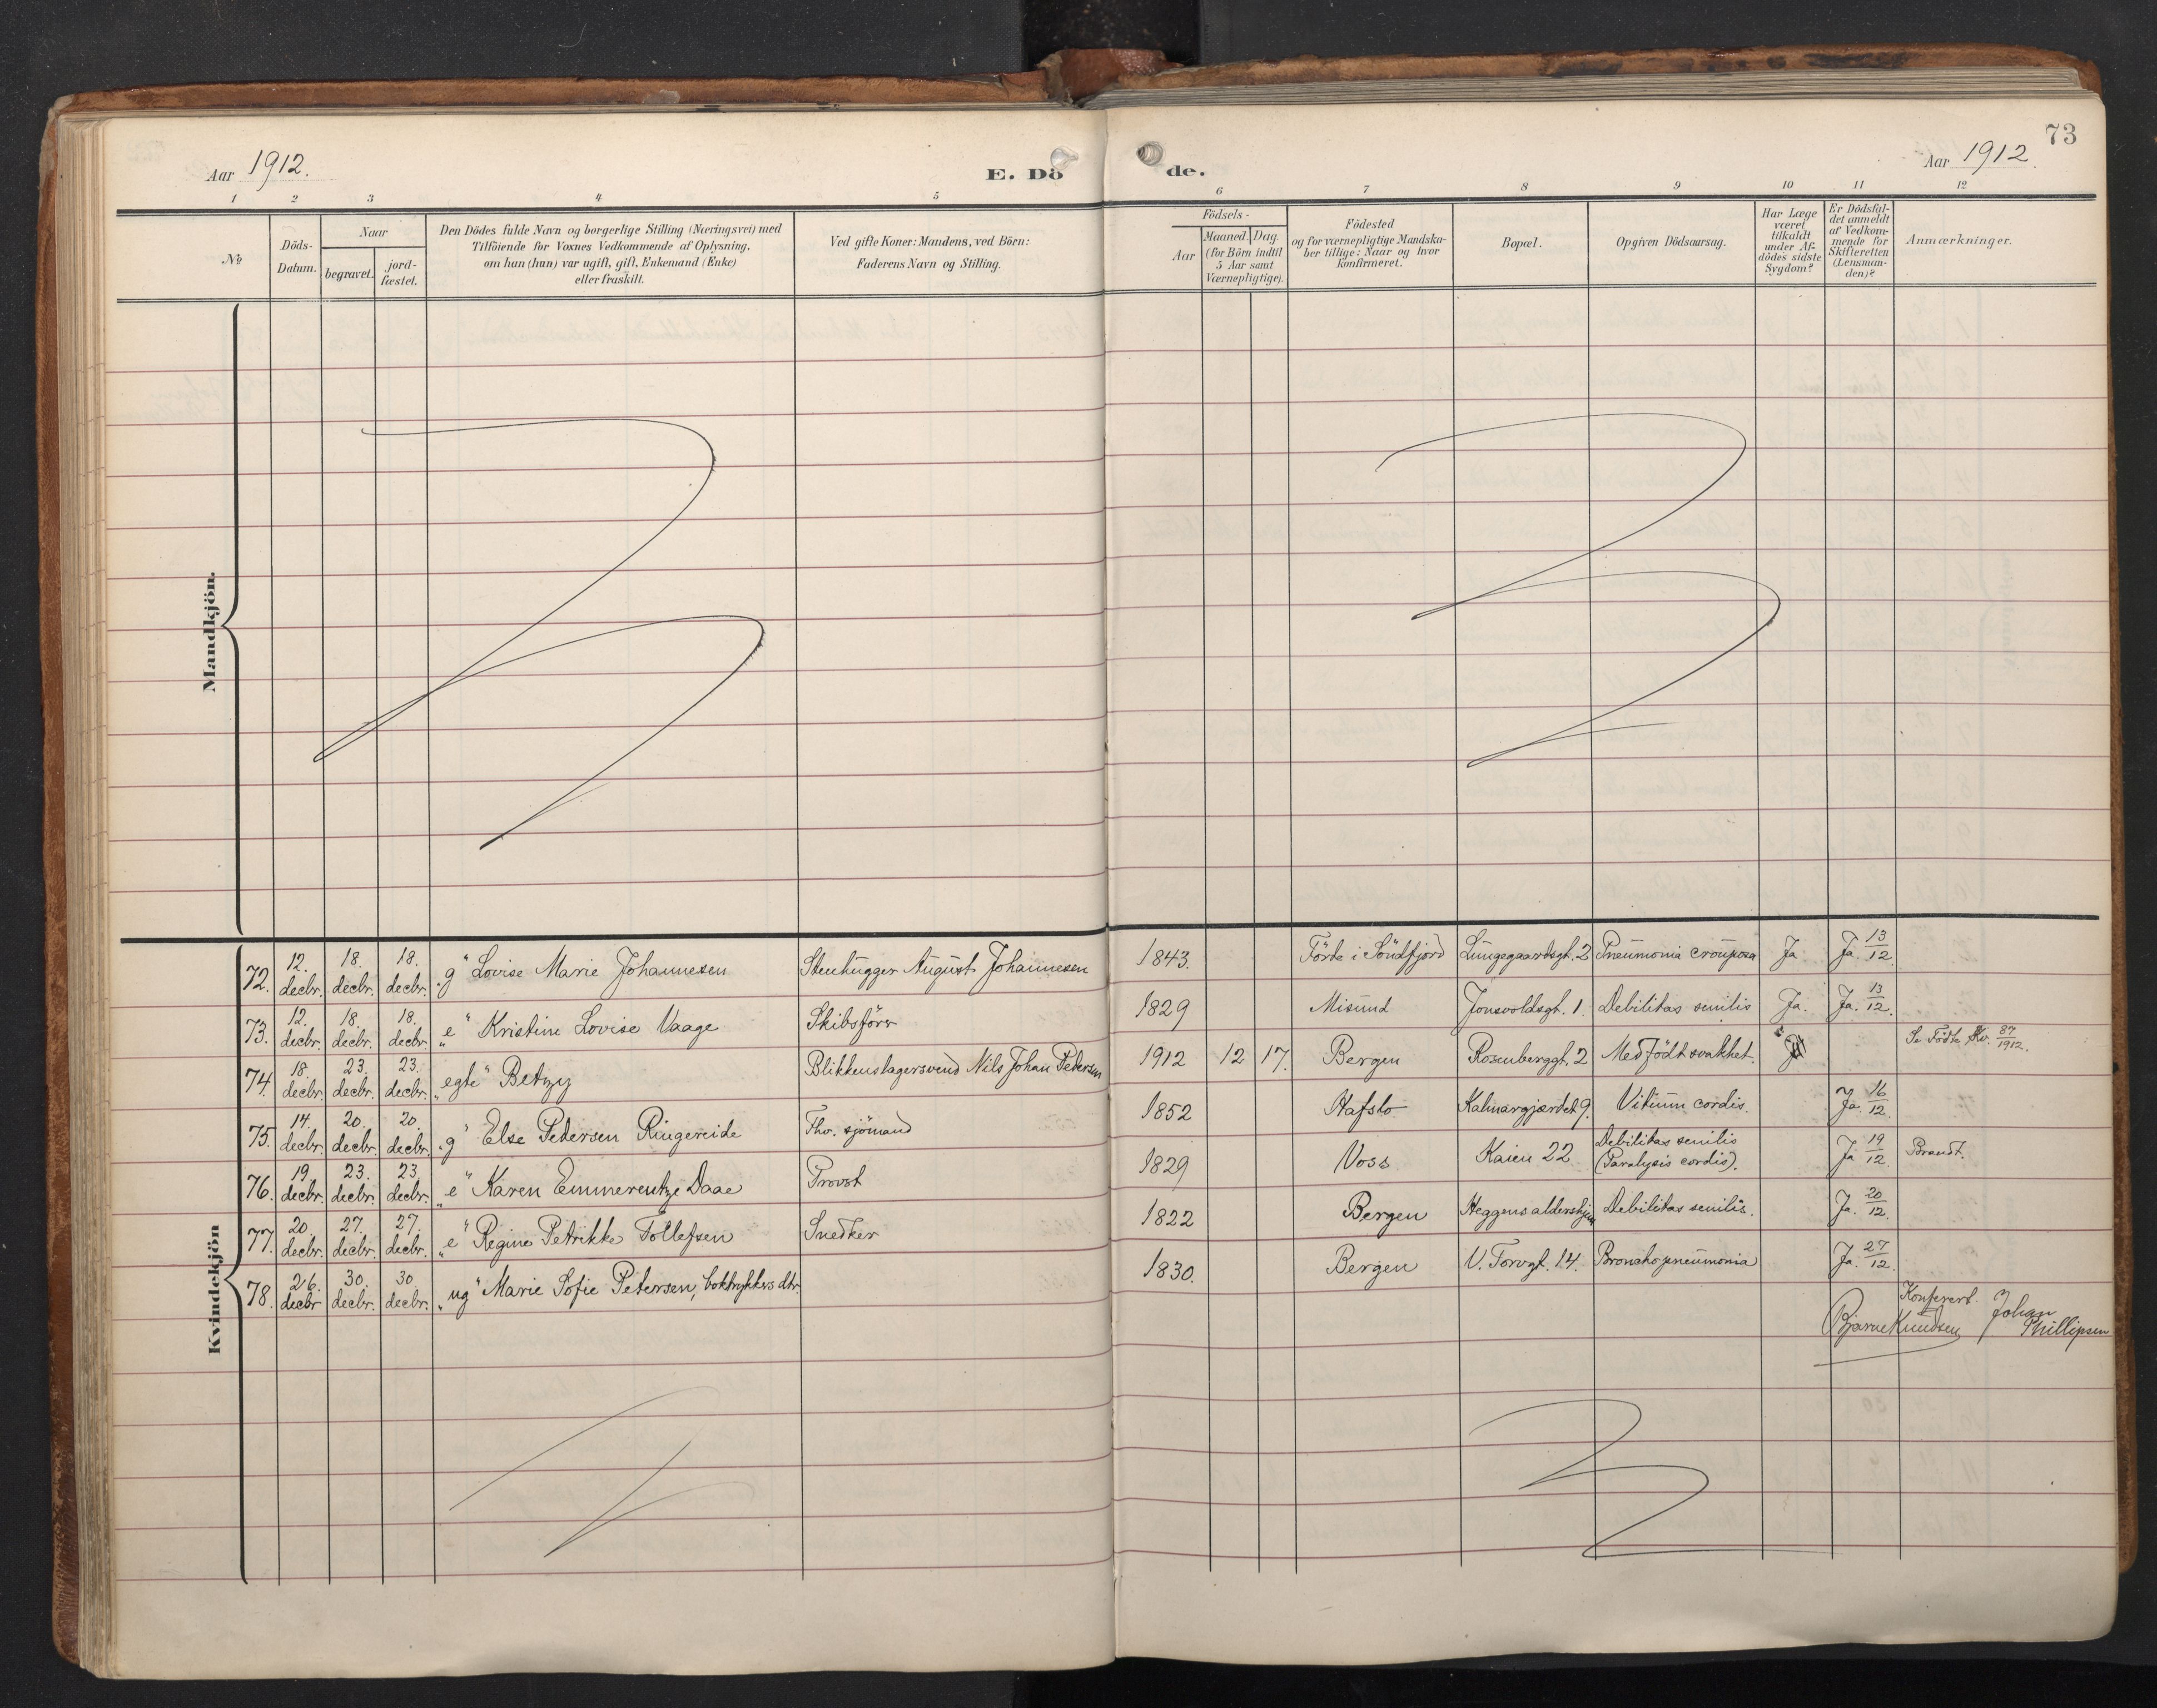 73
Aar 1912.
E. Dö de.
Aar 1912.
1 2 3 4 5 6 7 8 9 10 11 12
No
Döds-Datum.
Naar
begravet.
jord-fæstet.
Den Dödes fulde Navn og borgerlige Stilling (Næringsvei) med
Tilföiende for Voxnes Vedkommende af Oplysning,
om han (hun) var ugift, gift, Enkemand (Enke)
eller fraskilt.
Ved gifte Koner: Mandens, ved Börn:
Faderens Navn og Stilling.
Födsels-
Aar
Maaned. Dag.
(for Börn indtil
5 Aar samt
Værnepligtige).
Födested
og for værnepligtige Mandska-
ber tillige: Naar og hvor
konfirmeret.
Bopæl.
Opgiven Dödsaarsag.
Har Læge
været
tilkaldt
under Af-
dödes sidste
Sygdom?
Er Dödsfal-
det anmeldt
af Vedkom-
mende for
Skifteretten
(Lensman-
den)?
Anmærkninger.
Mandkjön.
Kvindekjön
72. 12. decbr. 18. decbr. 18. decbr. "g" Lovise Marie Johannesen Stenhugger August Johannesen 1843. Förde i Söndfjord Lungegaardsgt. 2 Pneumonia crouposa Ja Ja. 13/12.
73. 12. decbr. 18. decbr. 18. decbr. "e" Kristine Lovise Vaage Skibsförer 1829 Misund Jonsvoldsgt. 1. Debilitas senilis Ja. Ja. 13/12.
74. 18. decbr. 23. decbr. 23. decbr. "egte" Betzy Blikkenslagersvend Nils Johan Pedersen 1912 12 17. Bergen Rosenberggt. 2 Medfödt svakhet. Se Födte Kv. 87/1912.
75. 14. decbr. 20. decbr. 20. decbr. "g" Else Petersen Ringereide Fhv. sjömand 1852 Hafslo Kalmargjærdet 9. Vitium cordis. Ja 16/12.
76. 19. decbr. 23. decbr. 23 decbr. "e" Karen Emmerentze Daae Provst 1829 Voss Kaien 22 Debilitas senilis (Paralysis cordis). Ja 19/12. Brandt.
77. 20. decbr. 27. decbr. 27. decbr. "e" Regine Petrikke Tollefsen Snedker 1822 Bergen Heggens aldershjem Debilitas senilis. Ja. 20/12.
78. 26. decbr 30. decbr. 30. decbr. "ug" Marie Sofie Petersen, boktrykkers dtr. 1830. Bergen V. Torvgt. 14. Bronchopneumonia Ja. 27/12.
Konferert.
Bjarne Knudsen Johan Phillipsen